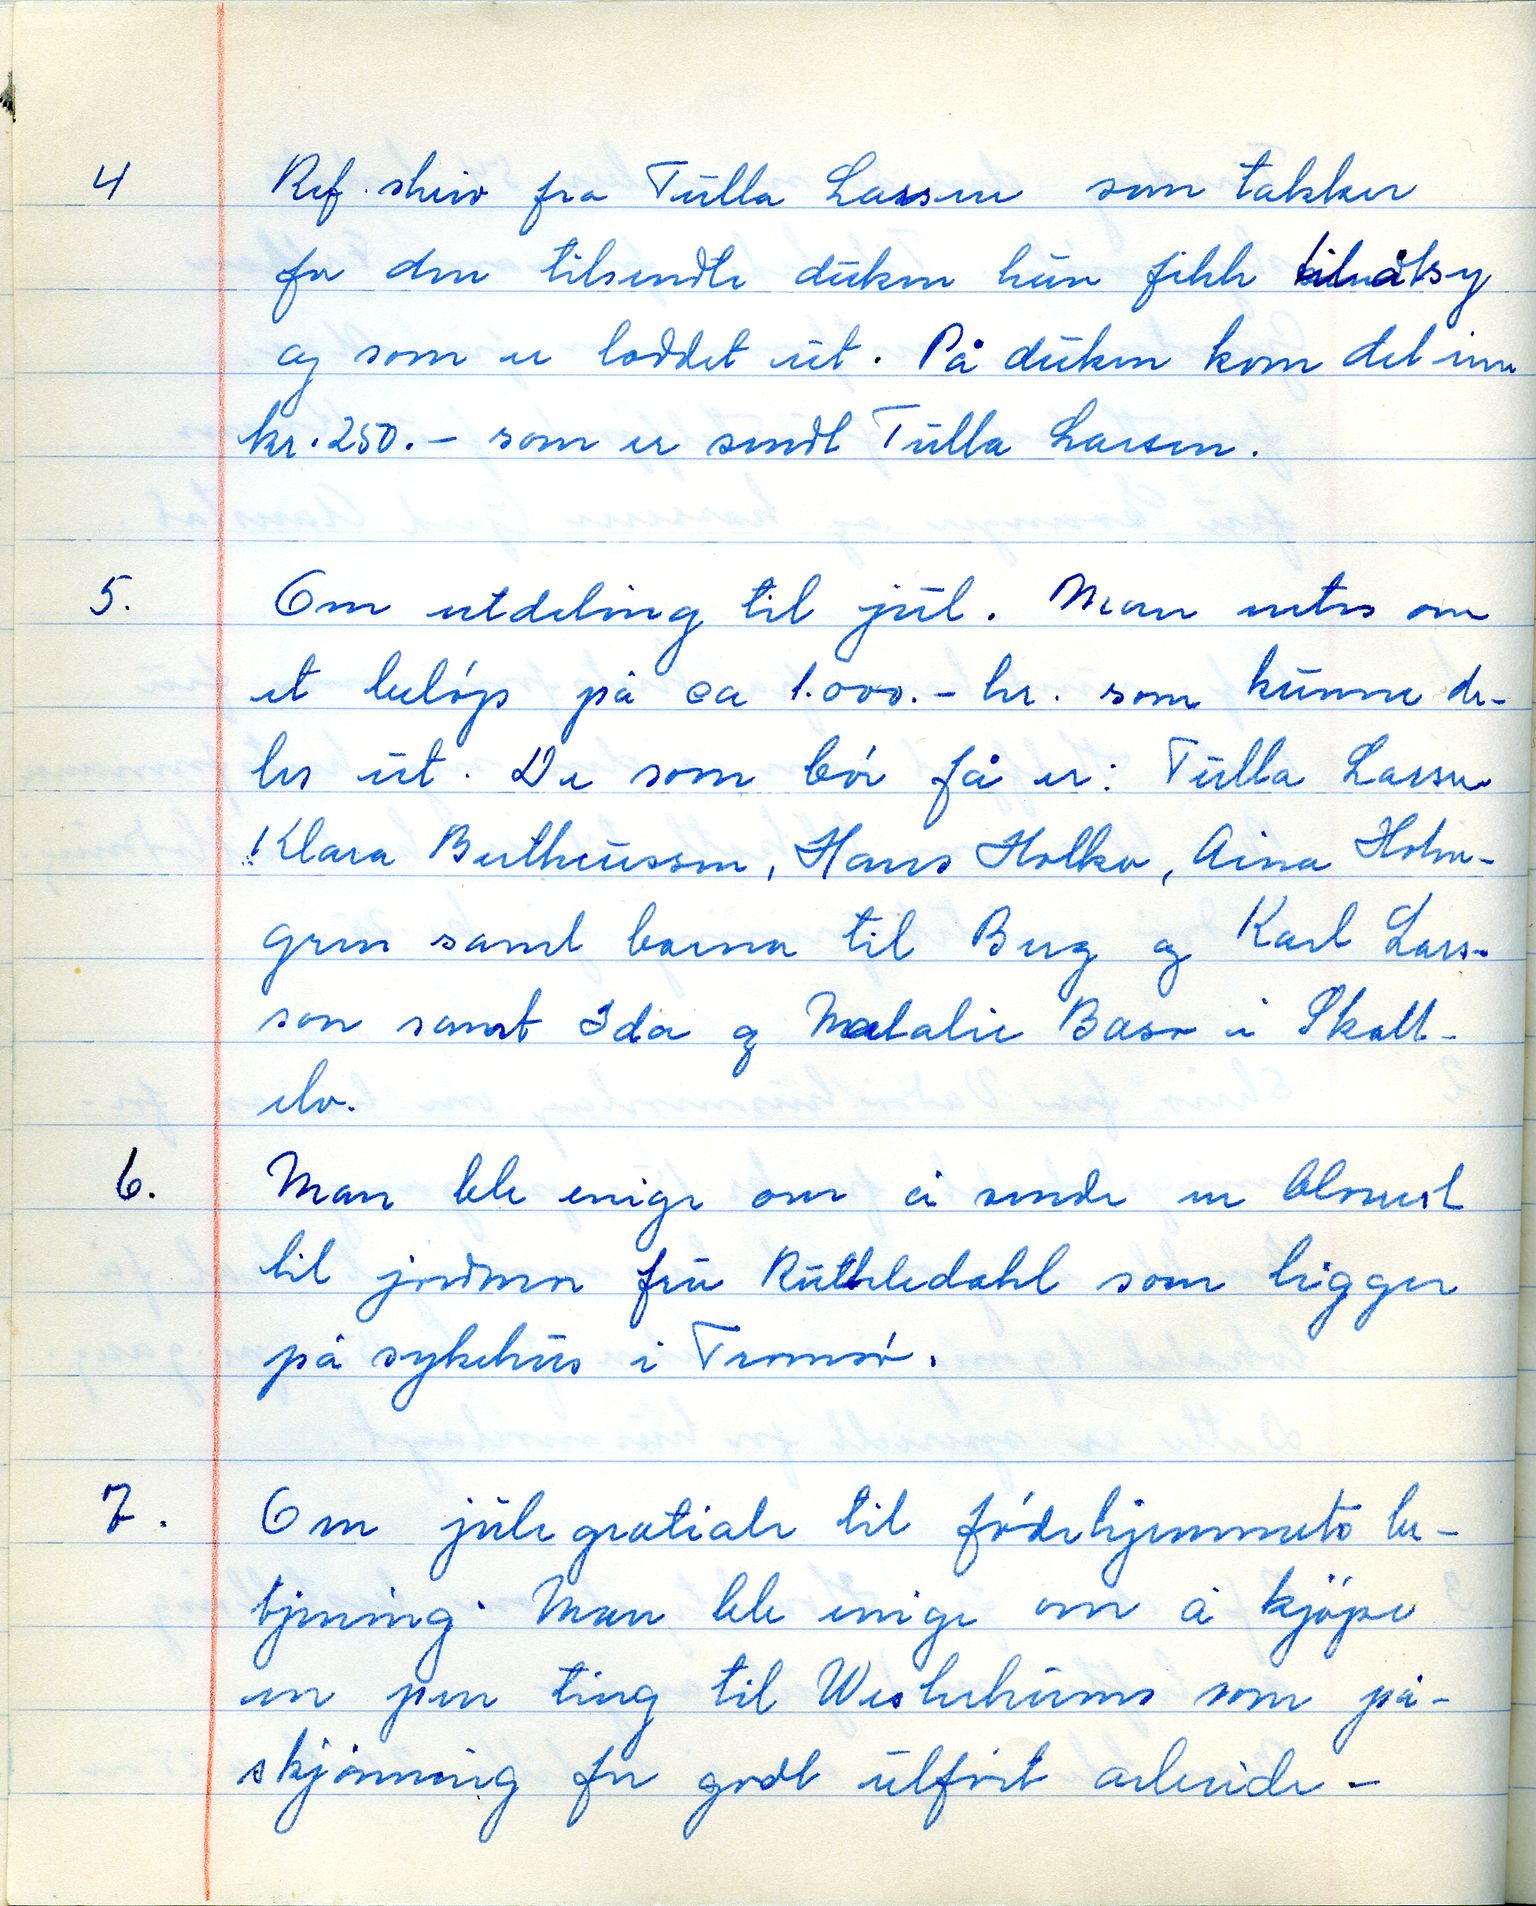 4 Ref. skriv fra Tulla Larsen som takker
for den tilsendte duken hun fikk
og som er loddet ut. På duken kom det inn
kr. 250.- som er sendt Tulla Larsen.
5. Om utdeling til jul. Man enes om
et beløp på ca 1.000.- kr. som kunne de-
les ut. De som bør få er: Tulla Larsen
Klara Bertheussen, Hans Holko, Aina Holm-
gren samt barna til Berg og Karl Lars-
son samt Ida og Natalie Basso i Skall-
elv.
6. Man ble enige om å sende en blomst
til jordmor fru Ruthledahl som ligger
på sykehus i Tromsø.
7. Om julegratiale til fødehjemmets be-
tjening. Man ble enige om å kjøpe
en pen ting til Westerheims som på-
skjønning for godt utført arbeide -